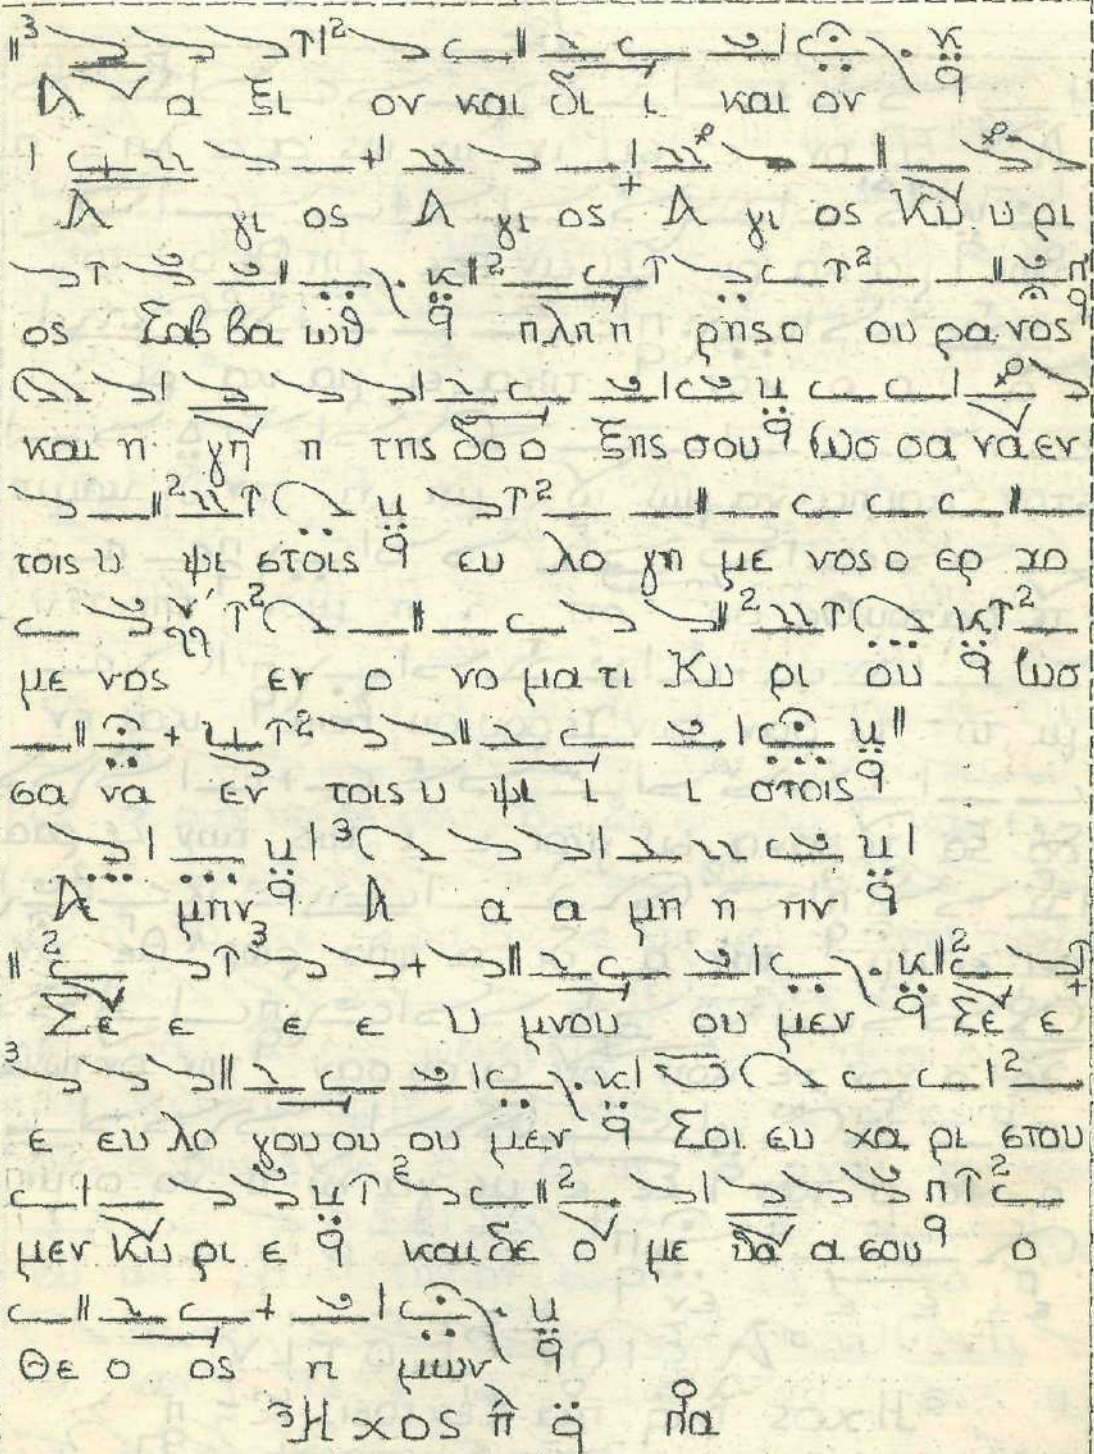 Α α ξι ον και δι ι και ον
Α γι ος Α γι ος Α γι ος Κυ υ ρι
ος Σαβ βα ωθ πλη η ρης ο ου ρα νος
και η γη η της δο ο ξης σου ωσ σα να εν
τοις υ ψι στοις ευ λο γη με νος ο ερ χο
με νος εν ο νο μα τι Κυ ρι ου ωσ
σα να εν τοις υ ψι ι ι στοις
Α μην Α α α μη η ην
Σε ε ε ε υ μνου ου μεν Σε ε
ε ευ λο γου ου ου μεν Σοι ευ χα ρι στου
μεν Κυ ρι ε και δε ο με θα α σου ο
Θε ο ος η μων
Ήχος λ π q Πα